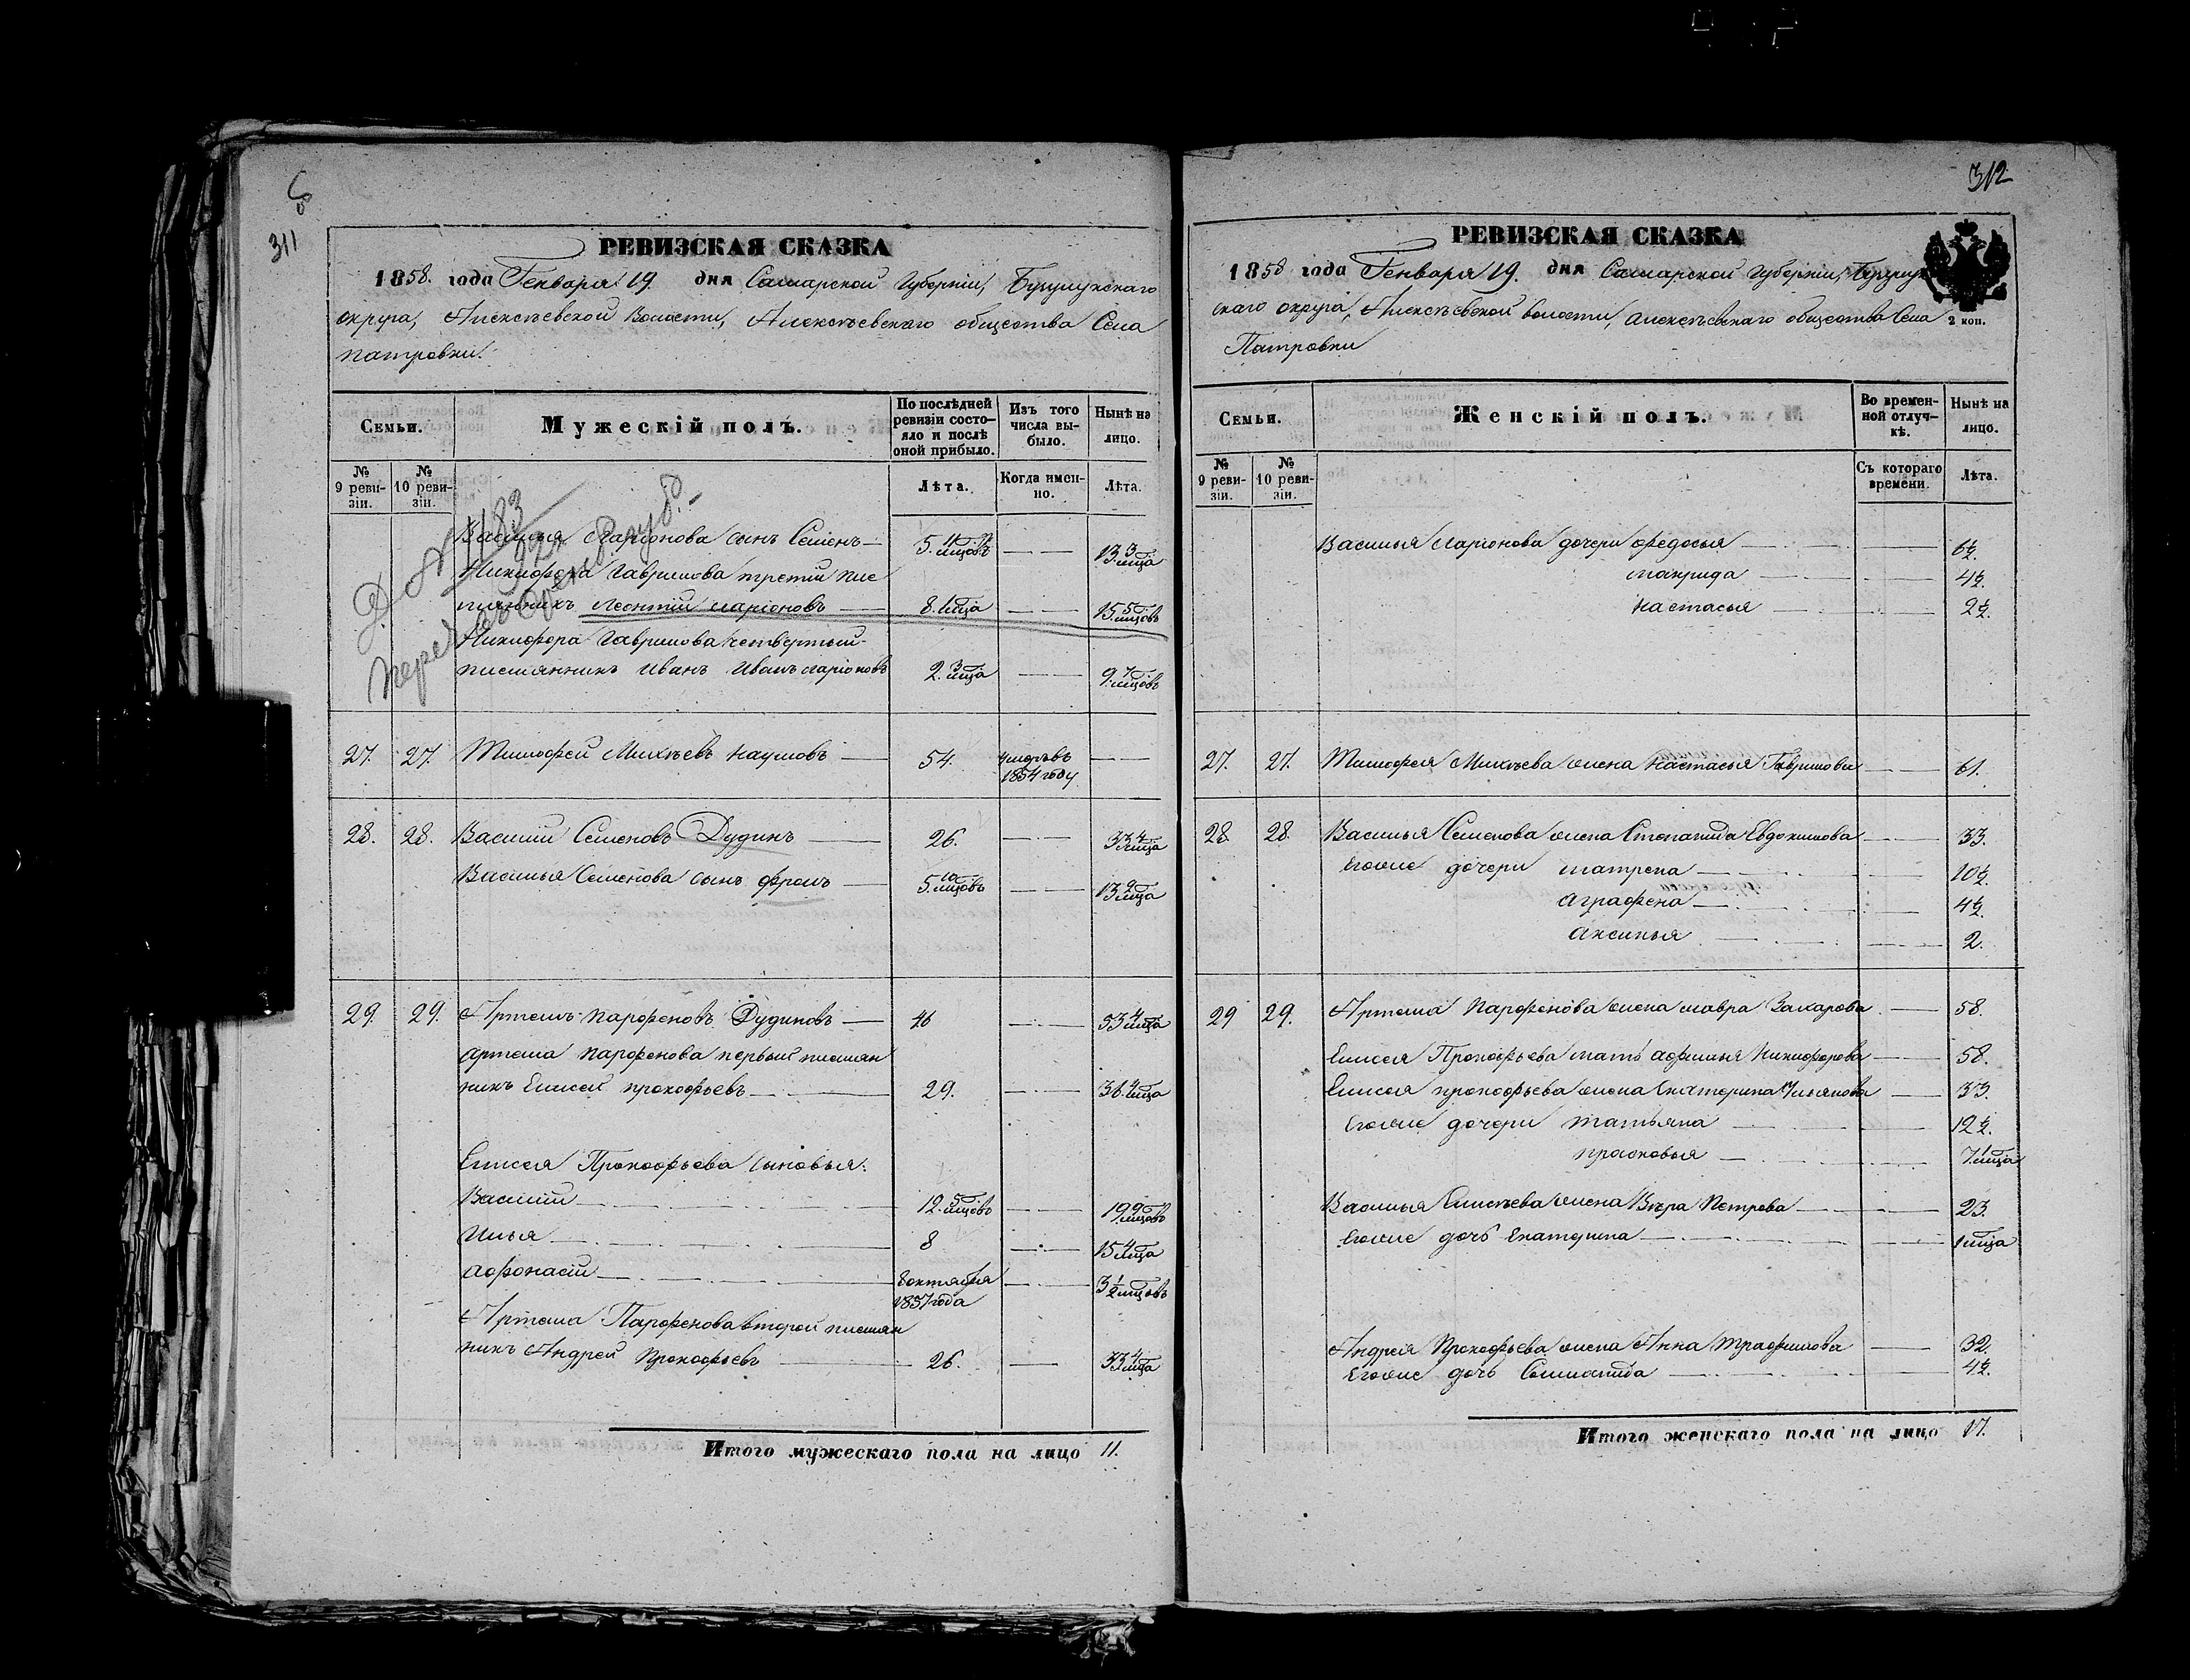 311
РЕВИЗСКАЯ СКАЗКА
1858. года Генваря 19 дня Самарской Губернiи, Бузулукскаго
округа, Алексѣевской Волости, Алексѣевскаго общества Села
Патровки.
Семьи.
Мужескiй полъ.
По послѣдней ревизiи состояло и послѣ оной прибыло.
Изъ того числа выбыло.
Нынѣ на лицо.
№ 9 ревизiи.
№ 10 ревизiи.
Лѣта.
Когда именно.
Лѣта.
Василья Ларiонова сынъ Семенъ — 5. 11 мцовъ — 13 3 мца
Никифора Гаврилова третiй пле
мянникъ Леонтiй Ларiоновъ — 8. 1 мца — 15 5 мцовъ
Никифора Гаврилова четвертый
племянникъ Иванъ Иванъ Ларiоновъ 2. 3 мца — 9. 7 мцовъ
27. 27. Тимофей Михѣевъ Наумовъ — 54. умеръ въ 1854 году —
28. 28. Василiй Семеновъ Дудинъ — 26. — 33 4 мца
Василья Семенова сынъ Фролъ — 5. 10 мцовъ — 13 2 мца
29. 29. Артемъ Парфеновъ Дудиновъ — 46 — 53 4 мца
Артема Парфенова первый племян
никъ Елисей Прокофьевъ — 29. — 36. 4 мца
Елисея Прокофьева сыновья:
Василiй — 12. 5 мцовъ — 19 9 мцовъ
Илья — 8 — 15 4 мца
Афонасiй — 8 октября 1857 года — 3 1/2 мцовъ
Артема Парфенова второй племян
никъ Андрей Прокофьевъ — 26. — 33 4 мца
Итого мужескаго пола на лицо 11.
312
РЕВИЗСКАЯ СКАЗКА
1858 года Генваря 19. дня Самарской Губернiи, Бузулук
скаго округа, Алексѣевской волости, Алексѣевскаго общества Села
Патровки
2 коп.
Семьи.
Женскiй полъ.
Во временной отлучкѣ.
Нынѣ на лицо.
№ 9 ревизiи.
№ 10 ревизiи.
Съ котораго времени.
Лѣта.
Василья Ларiонова дочери Федосья — 6½.
Макрида — 4½.
Настасья — 2½.
27. 27. Тимофея Михѣева жена Настасья Гаврилова — 61.
28. 28. Василья Семенова жена Степанида Евдокимова — 33.
Егоже дочери Матрена — 10½.
Аграфена — 4½.
Аксинья — 2.
29 29. Артема Парфенова жена Мавра Захарова — 58.
Елисея Прокофьева мать Афимья Никифорова — 58.
Елисея Прокофьева жена Екатерина Ульянова — 33.
Егоже дочери Татьяна — 12½.
Прасковья — 7. 1 мца
Василья Елисѣева жена Вѣра Петрова — 23.
Егоже дочь Екатерина — 1 мца
Андрея Прокофьева жена Анна Трафимова — 32.
Егоже дочь Соломанида — 4½.
Итого женскаго пола на лицо 17.